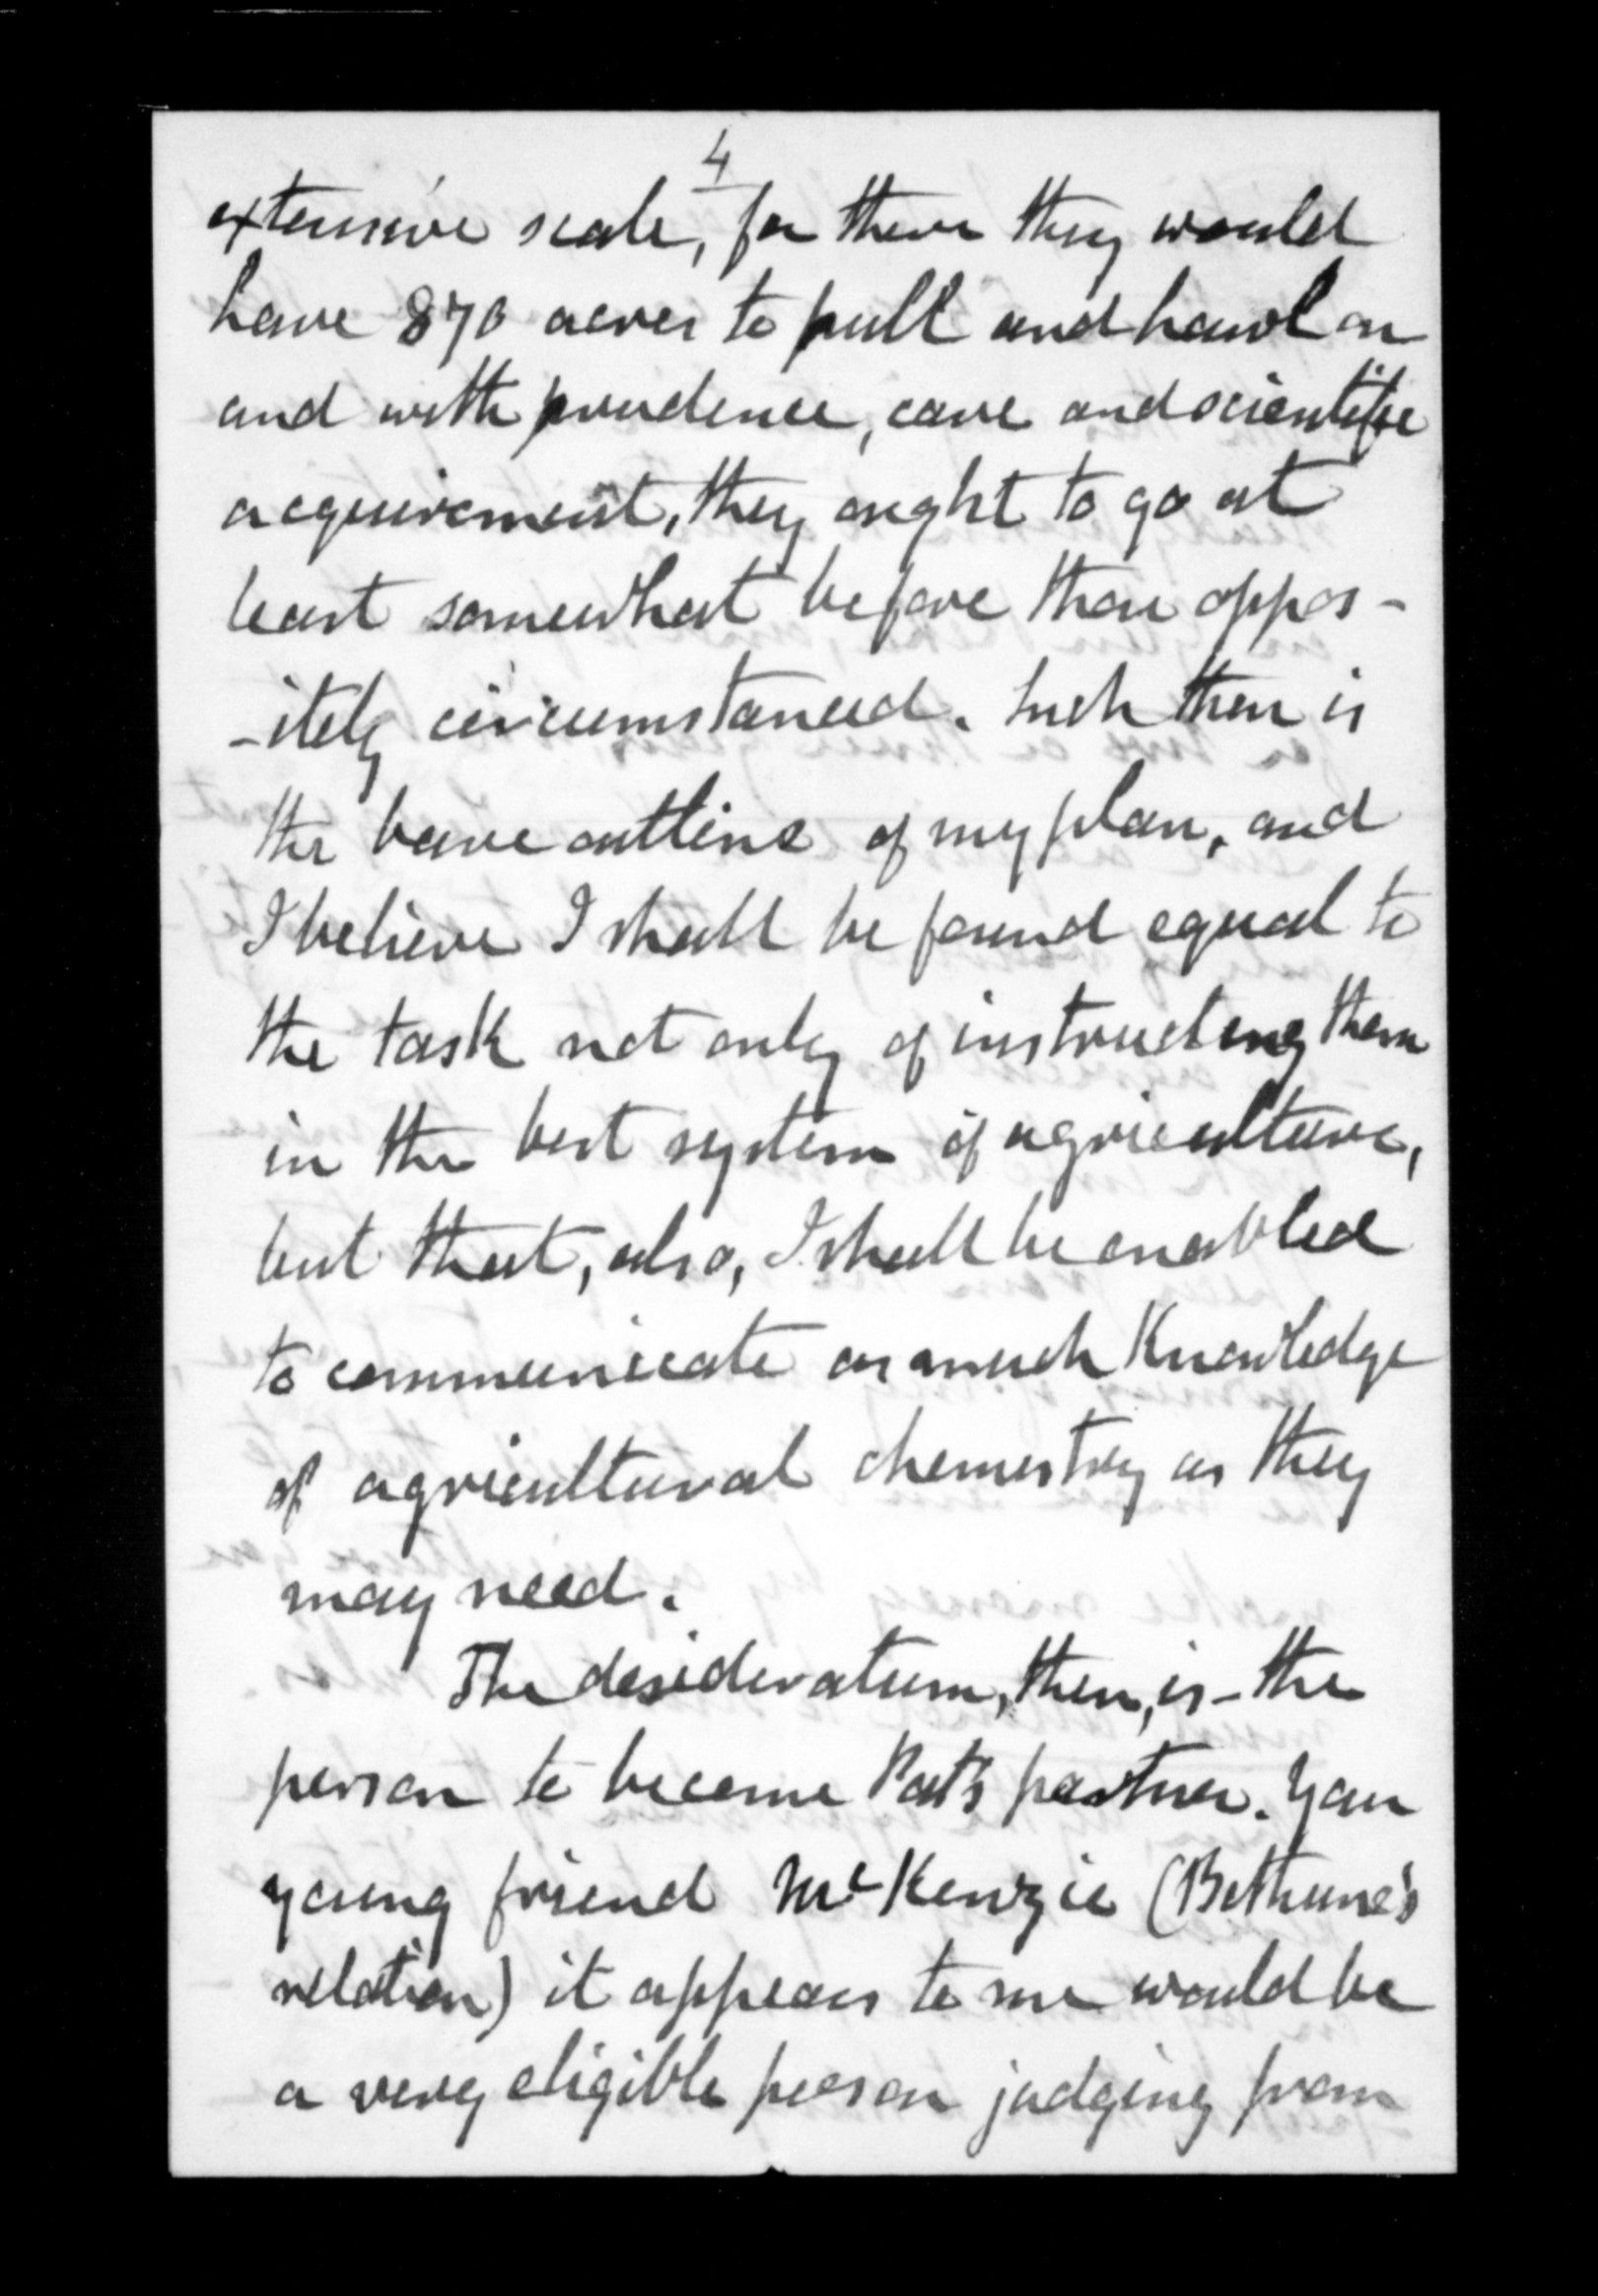 4
extensive scale, for there they would
have 870 acres to pull and hawl on
and with prudence, care and scientific
acquirement, they ought to go at
least somewhat before those oppos-
-itely circumstanced. Such then is
the bare outline of my plan, and
I believe I shall be found equal to
the task not only of instructing them
in the best system of agriculture,
but that, also, I shall be enabled
to communicate as much Knowledge
of agricultural chemestry as they
may need.
The desideratum, then, is - the
person to become Pat's partner. Your
young friend McKenzie (Bethune's
relation) it appears to me would be
a very eligible person judging from